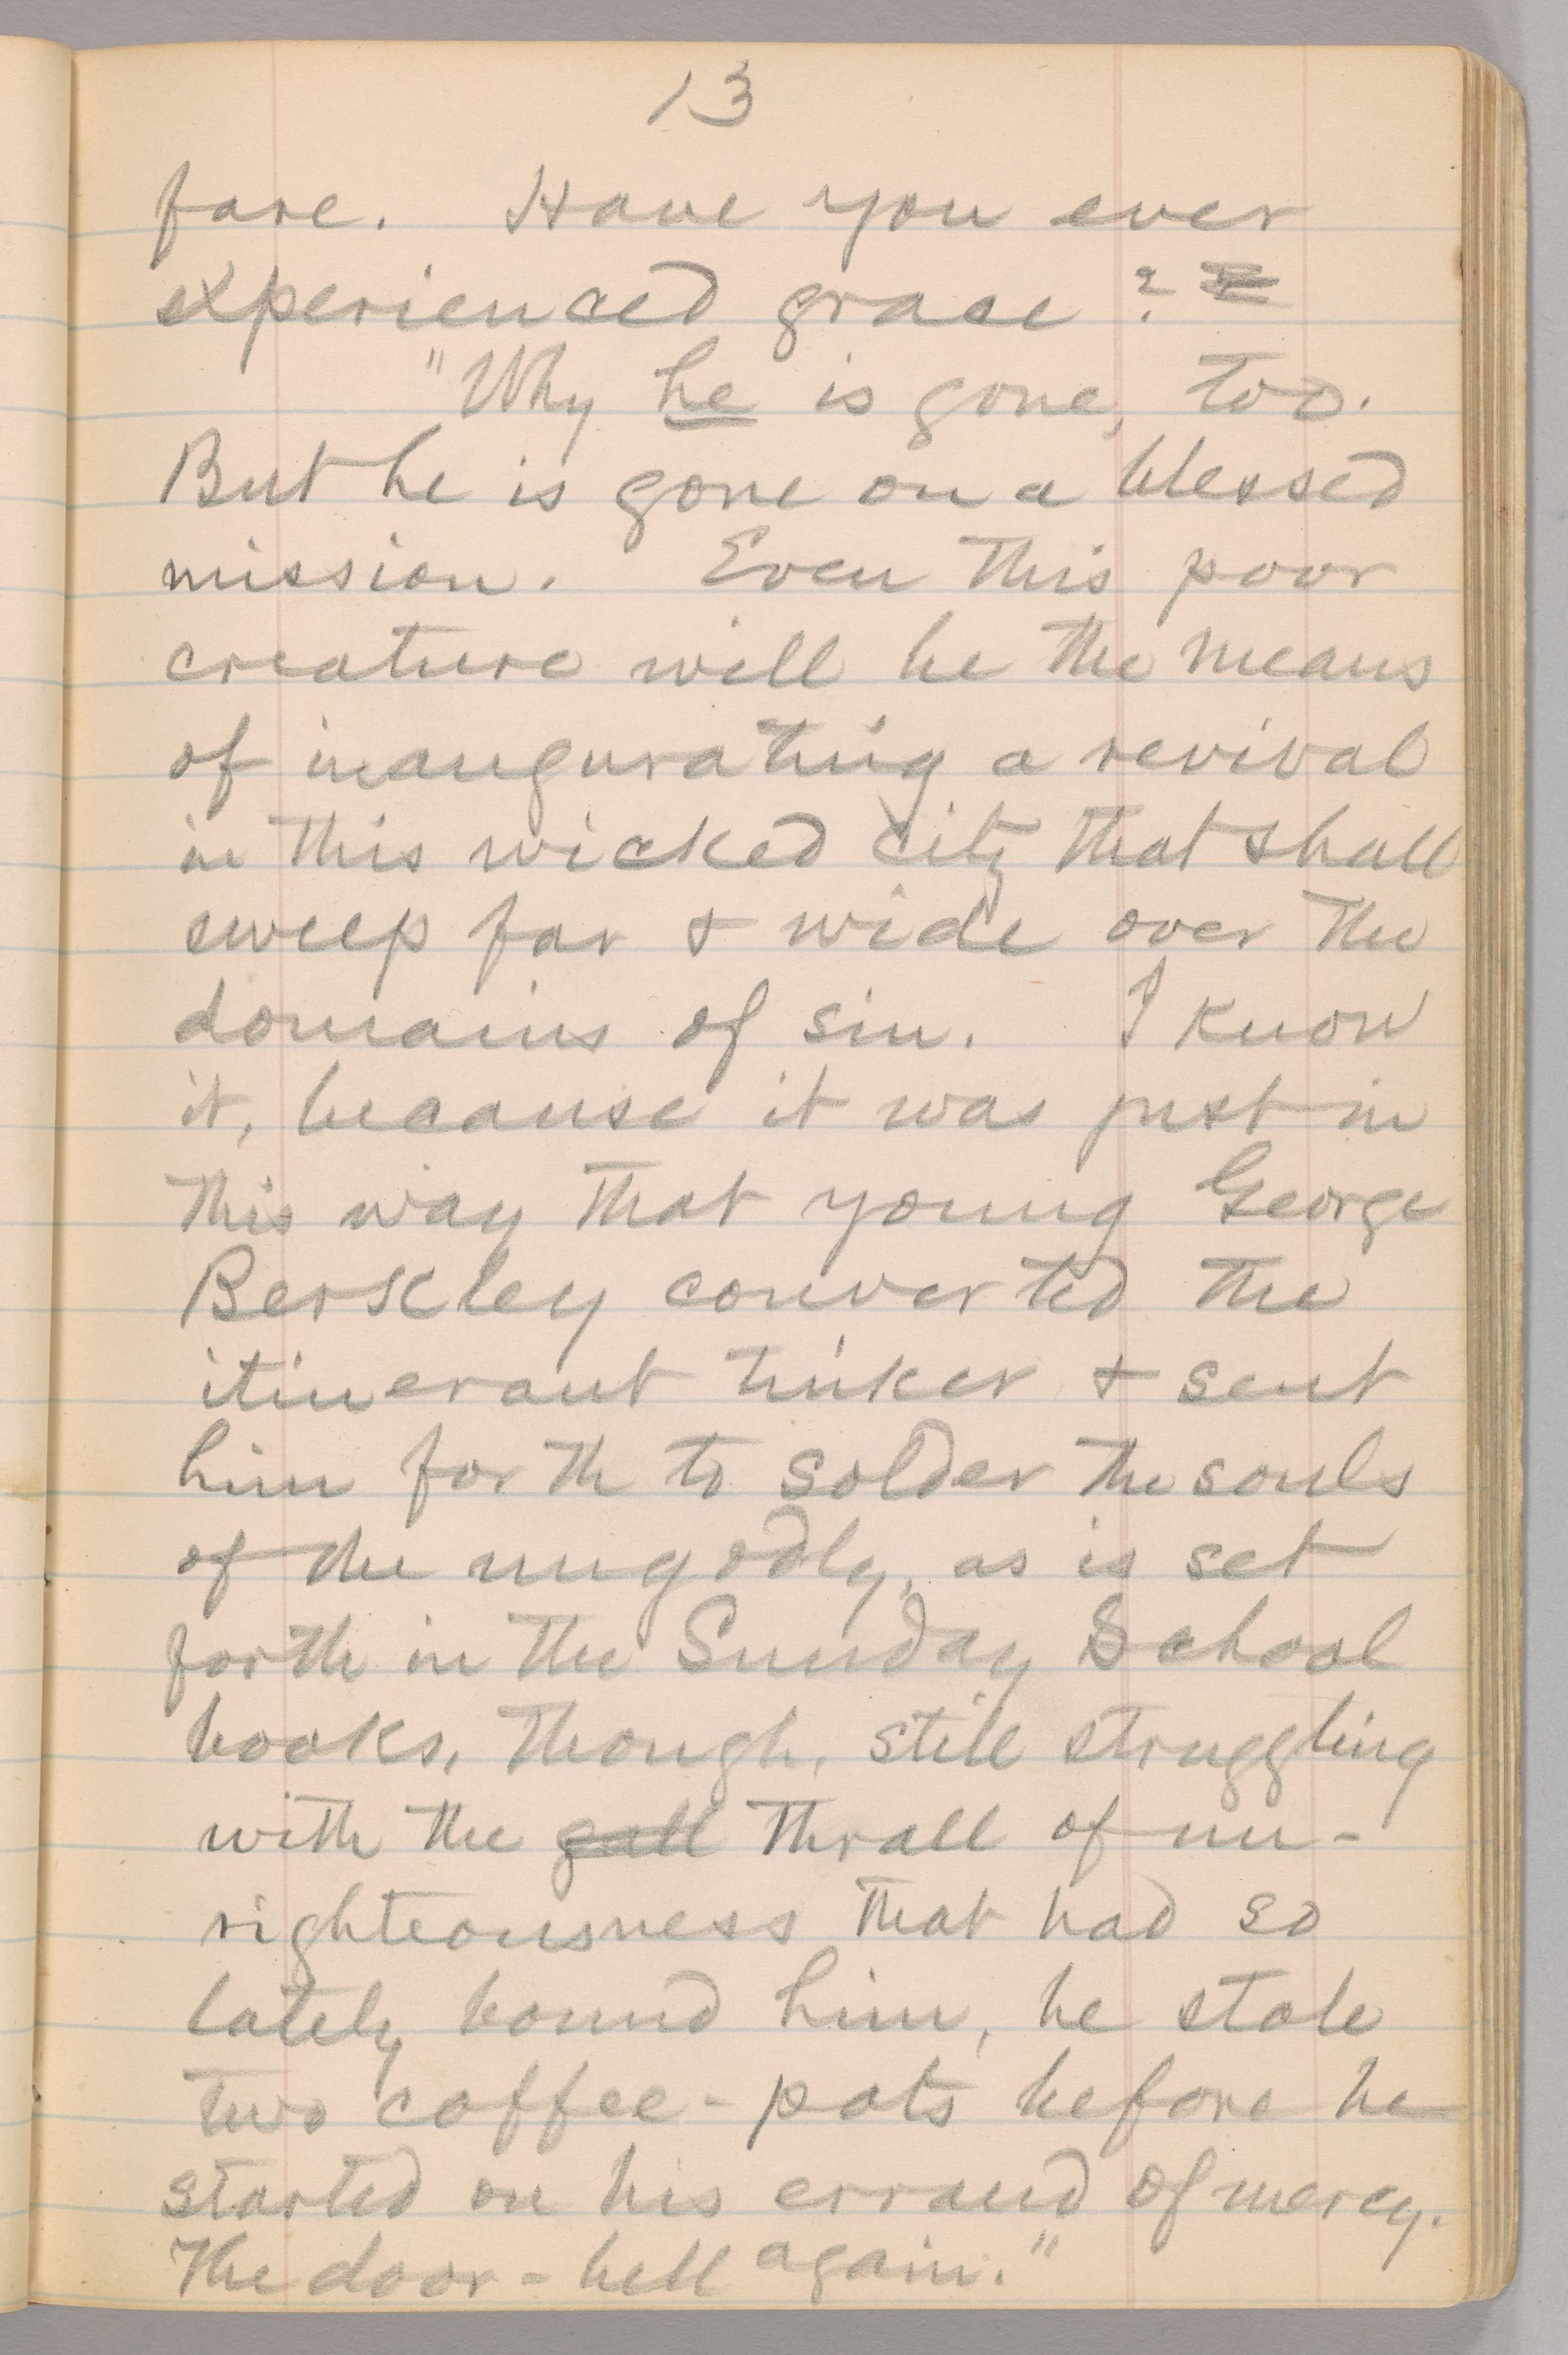 13
fare. Have you ever
experienced grace?
"Why he is gone, too.
But he is gone on a blessed
mission. Even this poor
creature will be the means
of inaugurating a revival
in this wicked city that shall
sweep far & wide over the
domains of sin. I know
it, because it was just in
this way that young George
Berkley converted the
itinerant tinker & sent
him forth to solder the souls
of the ungodly, as is set
forth in the Sunday School
books, though, still struggling
with the gall thrall of un-
righteousness that had so
lately bound him, he stole
two coffee-pots before he
started on his errand of mercy.
The door-bell again."